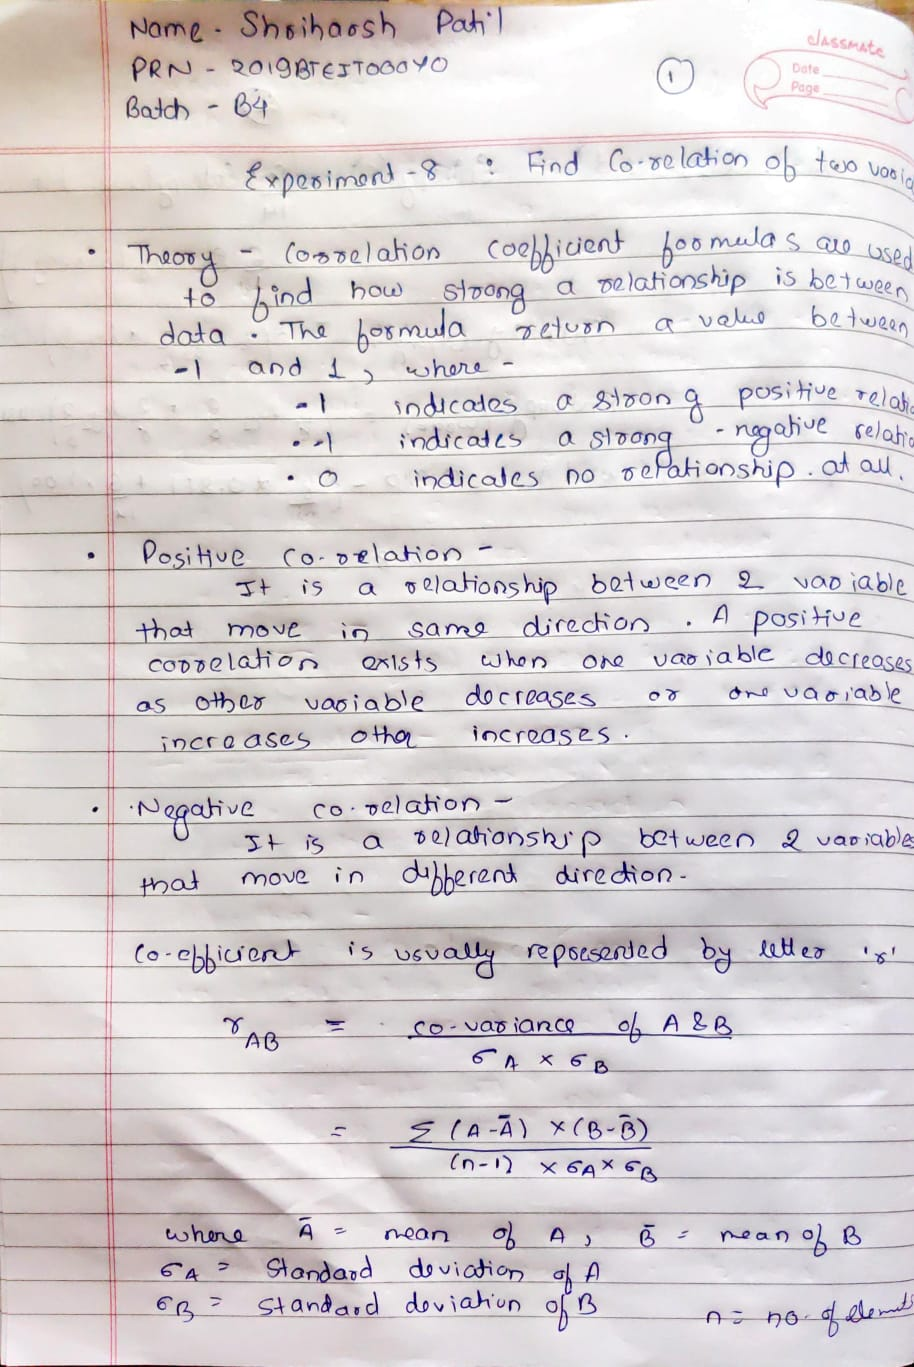 Name - Shriharsh Patil
classmate
Date
Page
PRN - 2019BTEIT00040
1
Batch - B4
Experiment -8 : Find Co-relation of two varia
• Theory - Correlation coefficient formulas are used
to find how strong a relationship is between
data. The formula return a value between
-1 and 1, where -
- 1 indicates a strong positive relatio
• -1 indicates a strong - negative relatio
• 0 indicates no relationship. at all.
• Positive co-relation -
It is a relationship between 2 variable
that move in same direction. A positive
correlation exists when one variable decreases
as other variable decreases or one variable
increases other increases.
• Negative co-relation -
It is a relationship between 2 variables
that move in different direction.
Co-efficient is usually represented by letter 'r'
r AB = co-variance of A & B
σA × σB
= Σ (A-Ā) × (B-B̄)
(n-1) × σA × σB
where Ā = mean of A, B̄ = mean of B
σA = Standard deviation of A
σB = Standard deviation of B n = no. of elements